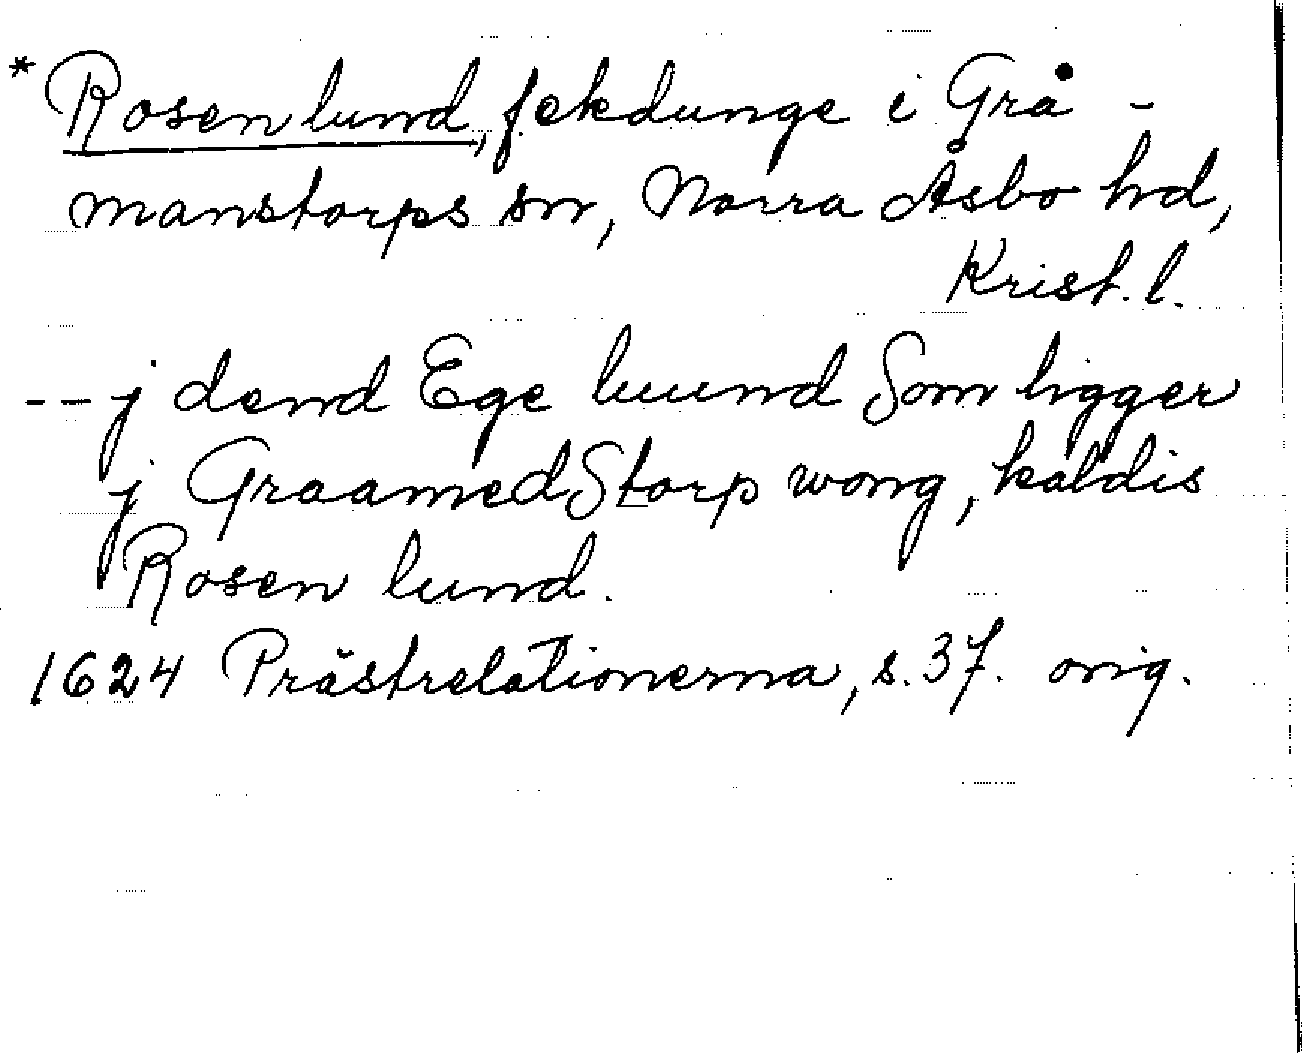 * Rosenlund, f. ekdunge i Grå -
manstorps sn, Norra Åsbo hd,
Krist. l.
-- j dend Ege luund Som ligger
j GraamedStorp wong, kaldis
Rosen lund.
1624 Prästrelationerna, s. 37. orig.